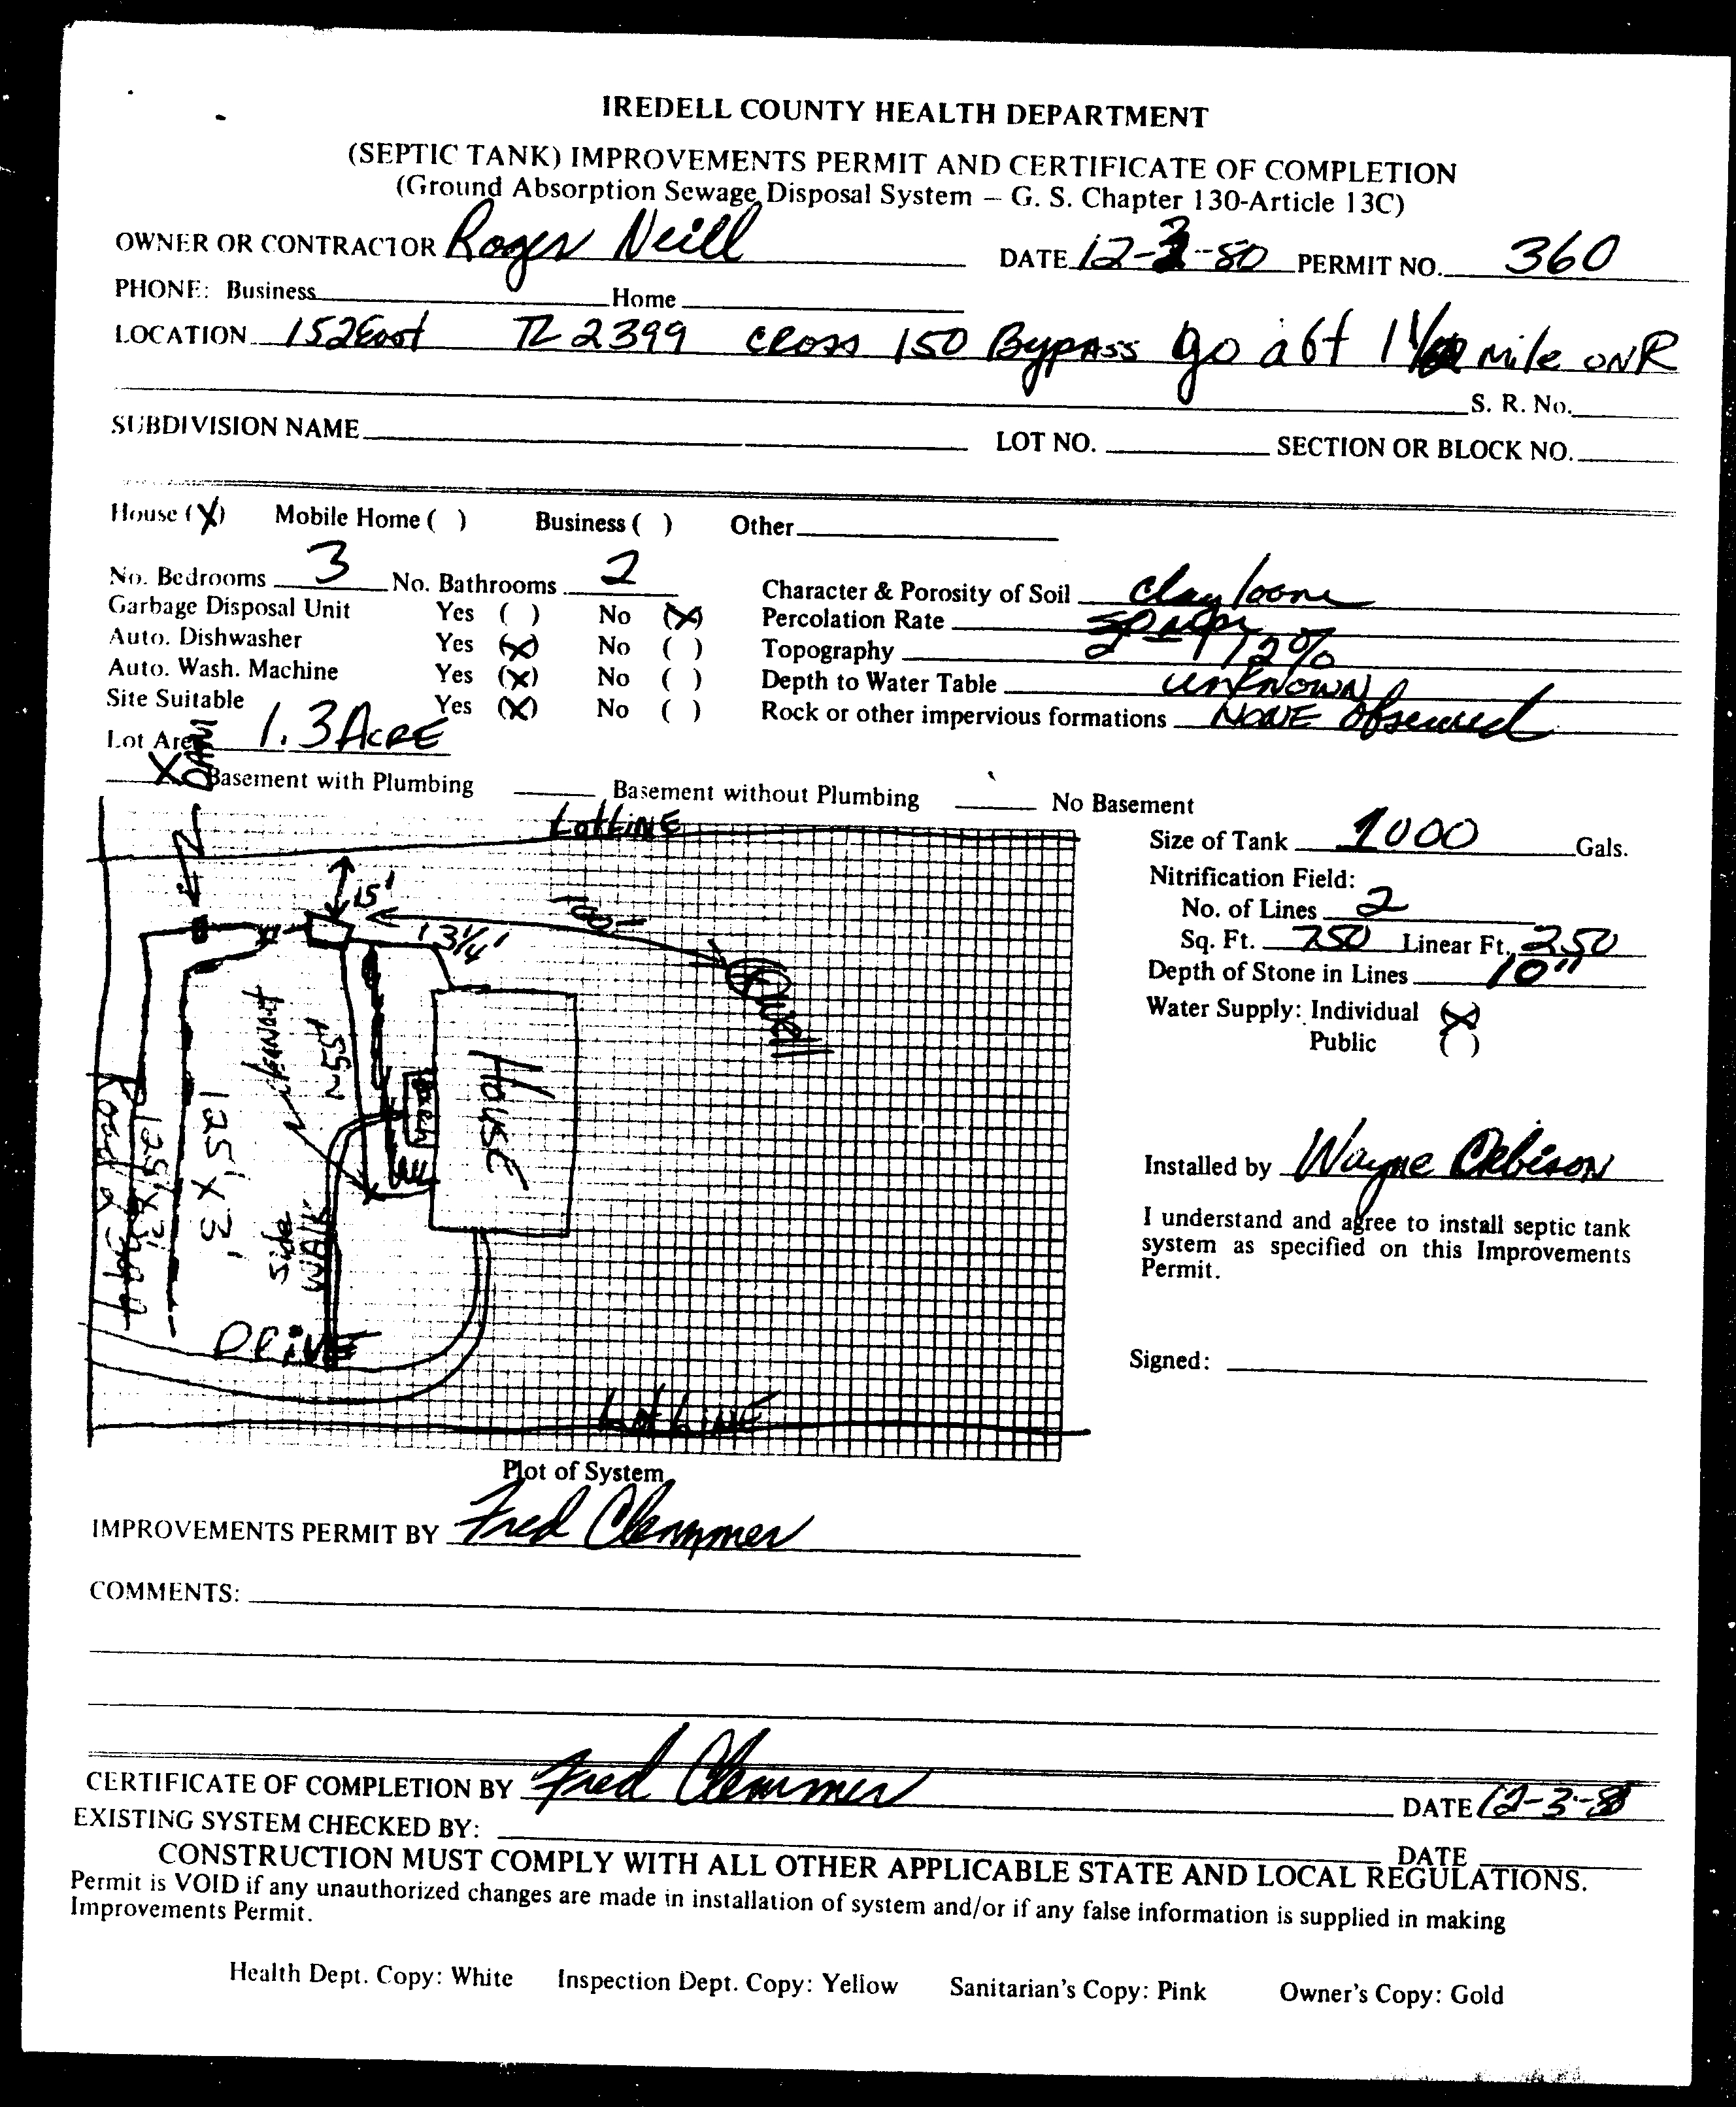 IREDELL COUNTY HEALTH DEPARTMENT
(SEPTIC TANK) IMPROVEMENTS PERMIT AND CERTIFICATE OF COMPLETION
(Ground Absorption Sewage Disposal System – G. S. Chapter 130-Article 13C)
OWNER OR CONTRACTOR Roger Neill DATE 12-3-80 PERMIT NO. 360
PHONE: Business Home
LOCATION 152 East TL 2399 cross 150 Bypass go abt 1 mile on R
S. R. No.
SUBDIVISION NAME LOT NO. SECTION OR BLOCK NO.
House (X) Mobile Home ( ) Business ( ) Other
No. Bedrooms 3 No. Bathrooms 2 Character & Porosity of Soil clay loam
Garbage Disposal Unit Yes ( ) No (X) Percolation Rate
Auto. Dishwasher Yes (X) No ( ) Topography 2-12%
Auto. Wash. Machine Yes (X) No ( ) Depth to Water Table unknown
Site Suitable Yes (X) No ( ) Rock or other impervious formations NONE Observed
Lot Area 1.3 ACRE
DAM
X Basement with Plumbing Basement without Plumbing No Basement
Lot LINE
Size of Tank 1000 Gals.
Nitrification Field:
No. of Lines 2
Sq. Ft. 750 Linear Ft. 250
Depth of Stone in Lines 10"
Water Supply: Individual (X)
Public ( )
15'
100'
13 1/4'
Well
House
Porch
cleanout
N55'
125' X 3'
125' X 3'
Side WALK
DRIVE
Lot LINE
Installed by Wayne Orbison
I understand and agree to install septic tank
system as specified on this Improvements
Permit.
Signed:
Plot of System
IMPROVEMENTS PERMIT BY Fred Clemmer
COMMENTS:
CERTIFICATE OF COMPLETION BY Fred Clemmer DATE 12-3-80
EXISTING SYSTEM CHECKED BY: DATE
CONSTRUCTION MUST COMPLY WITH ALL OTHER APPLICABLE STATE AND LOCAL REGULATIONS.
Permit is VOID if any unauthorized changes are made in installation of system and/or if any false information is supplied in making
Improvements Permit.
Health Dept. Copy: White Inspection Dept. Copy: Yellow Sanitarian's Copy: Pink Owner's Copy: Gold